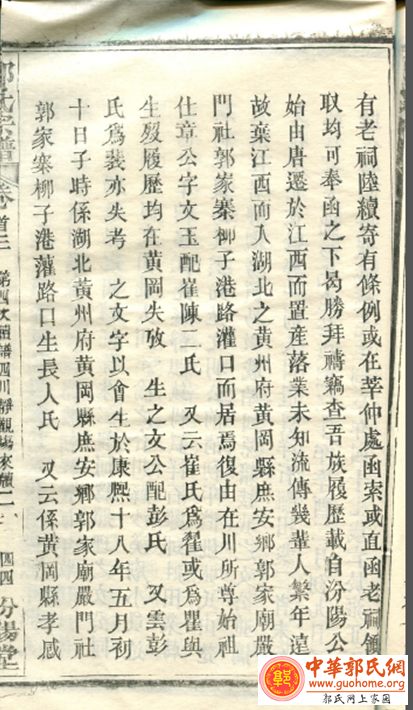 有老祠陸續寄有條例或在莘仲處函索或直函老祠領
取均可奉函之下曷勝拜禱竊查吾族履歷載自汾陽公
始由唐遷於江西而置產落業未知流傳幾輩人繁年遠
故棄江西而入湖北之黃州府黃岡縣庶安鄉郭家廟嚴
門社郭家寨柳子港路灌口而居焉復由在川所尊始祖
仕章公字文玉配崔陳二氏 又云崔氏為翟或為瞿與
生歿履歷均在黃岡失攷 生之文公配彭氏 又雲彭
氏為裴亦失考 之文字以會生於康熙十八年五月初
十日子時係湖北黃州府黃岡縣庶安鄉郭家廟嚴門社
郭家寨柳子港灌路口生長人氏 又云係黃岡縣孝感
郭氏宗譜 卷首三 第四次續譜四川靜觀場來稿二 四四 汾陽堂
中華郭氏網
www.guohome.org
郭氏网上家园